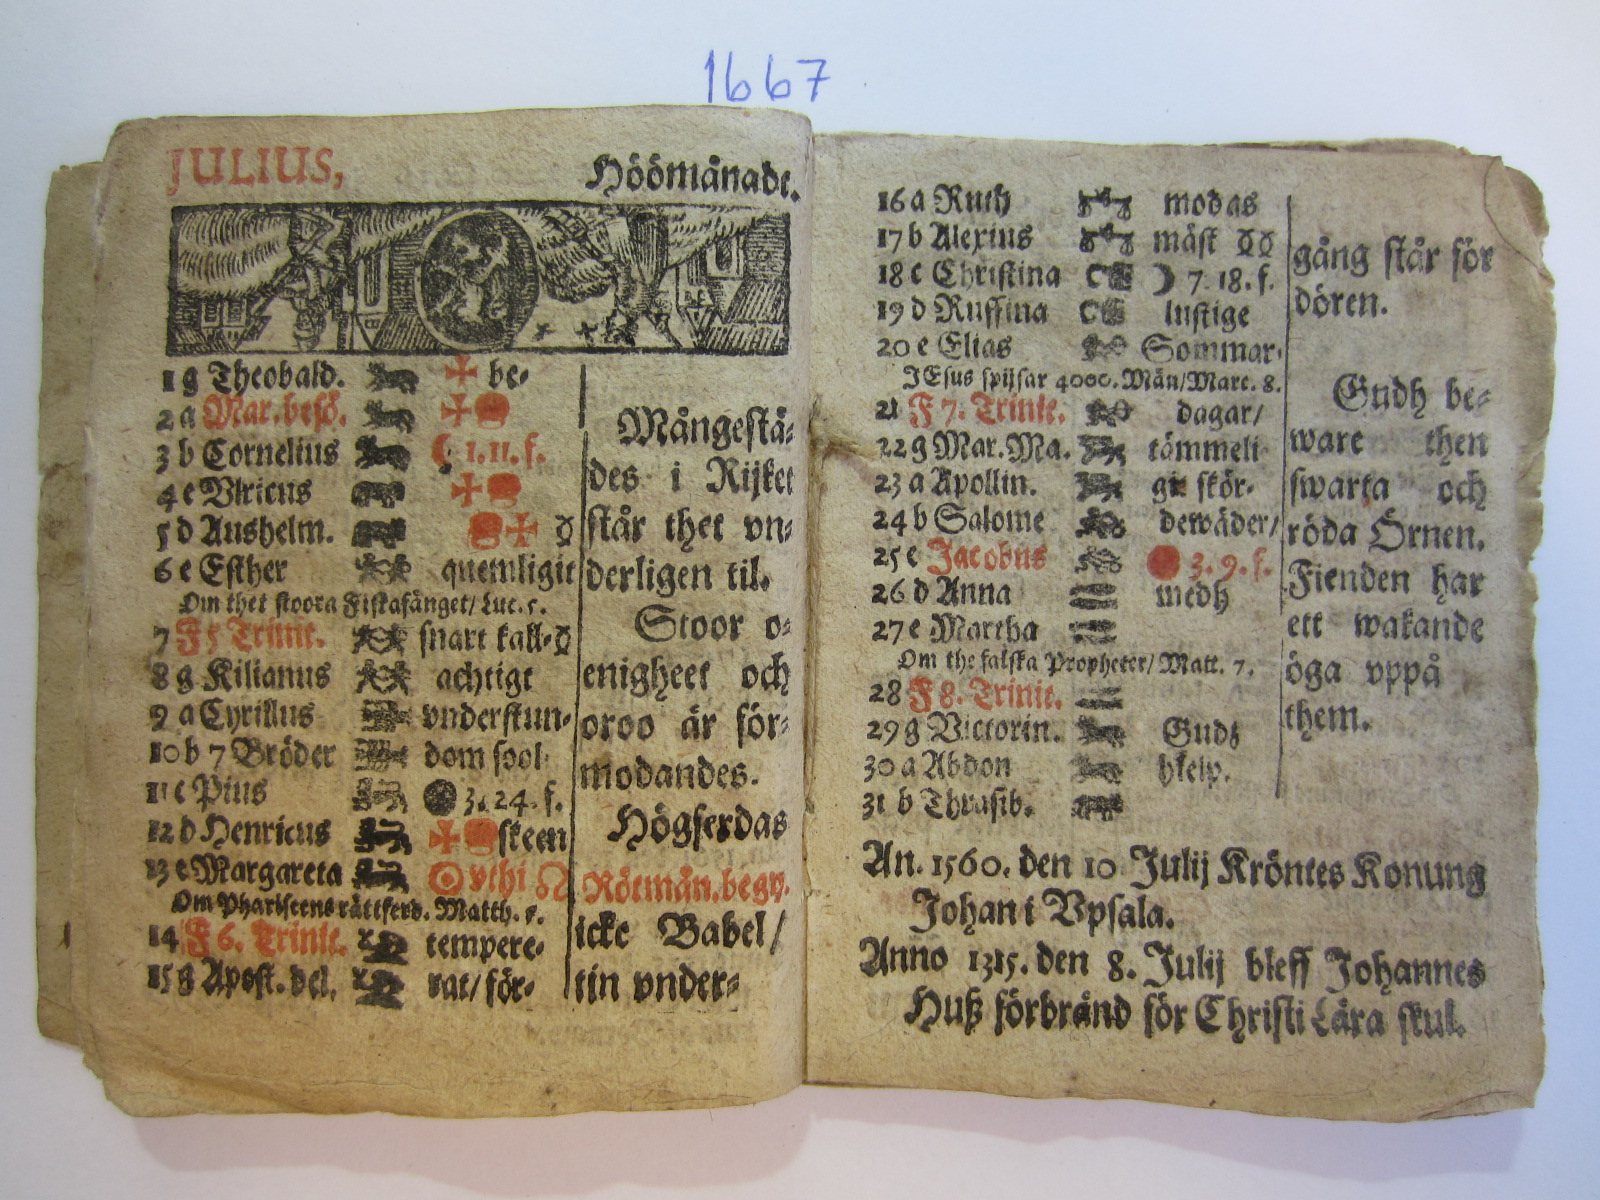 1667
JULIUS, Höömånadt.
1 g Theobald. be-
2 a Mar. besö.
3 b Cornelius 1. 11. f.
4 c Vlricus
5 d Anshelm.
6 e Esther quemligit
Om thet stoora Fiskafänget/ Luc. 5.
7 F 5 Trinit. snart kall-
8 g Kilianus achtigt
9 a Cyrillus vnderstun-
10 b 7 Bröder dom sool
11 c Pius 3. 24. f.
12 d Henricus skeen
13 e Margareta vthi ♌ Rötmån. begy.
Om Phariseens rättferd. Matth. 5.
14 F 6. Trinit. tempere-
15 g Apost. del. rat/ för-
Mångestä-
des i Rijket
står thet vn-
derligen til.
Stoor o-
enigheet och
oroo är för-
modandes.
Högferdas
icke Babel/
tin vnder-
16 a Ruth modas
17 b Alexius mäst
18 c Christina 7. 18. f.
19 d Ruffina lustige
20 e Elias Sommar-
JEsus spijsar 4000. Män/Marc. 8.
21 F 7. Trinit. dagar/
22 g Mar. Ma. tämmeli
23 a Apollin. skör-
24 b Salome dewäder/
25 c Jacobus 3. 9. f.
26 d Anna medh
27 e Martha
Om the falska Propheter/ Matt. 7.
28 F 8. Trinit.
29 g Victorin. Gudz
30 a Abdon hielp.
31 b Thrasib.
gång står för
dören.
Gudh be-
ware then
swarta och
röda Örnen.
Fienden har
ett wakande
öga vppå
them.
An. 1560. den 10 Julij Kröntes Konung
Johan i Vpsala.
Anno 1315. den 8. Julij bleff Johannes
Huß förbränd för Christi Lära skul.